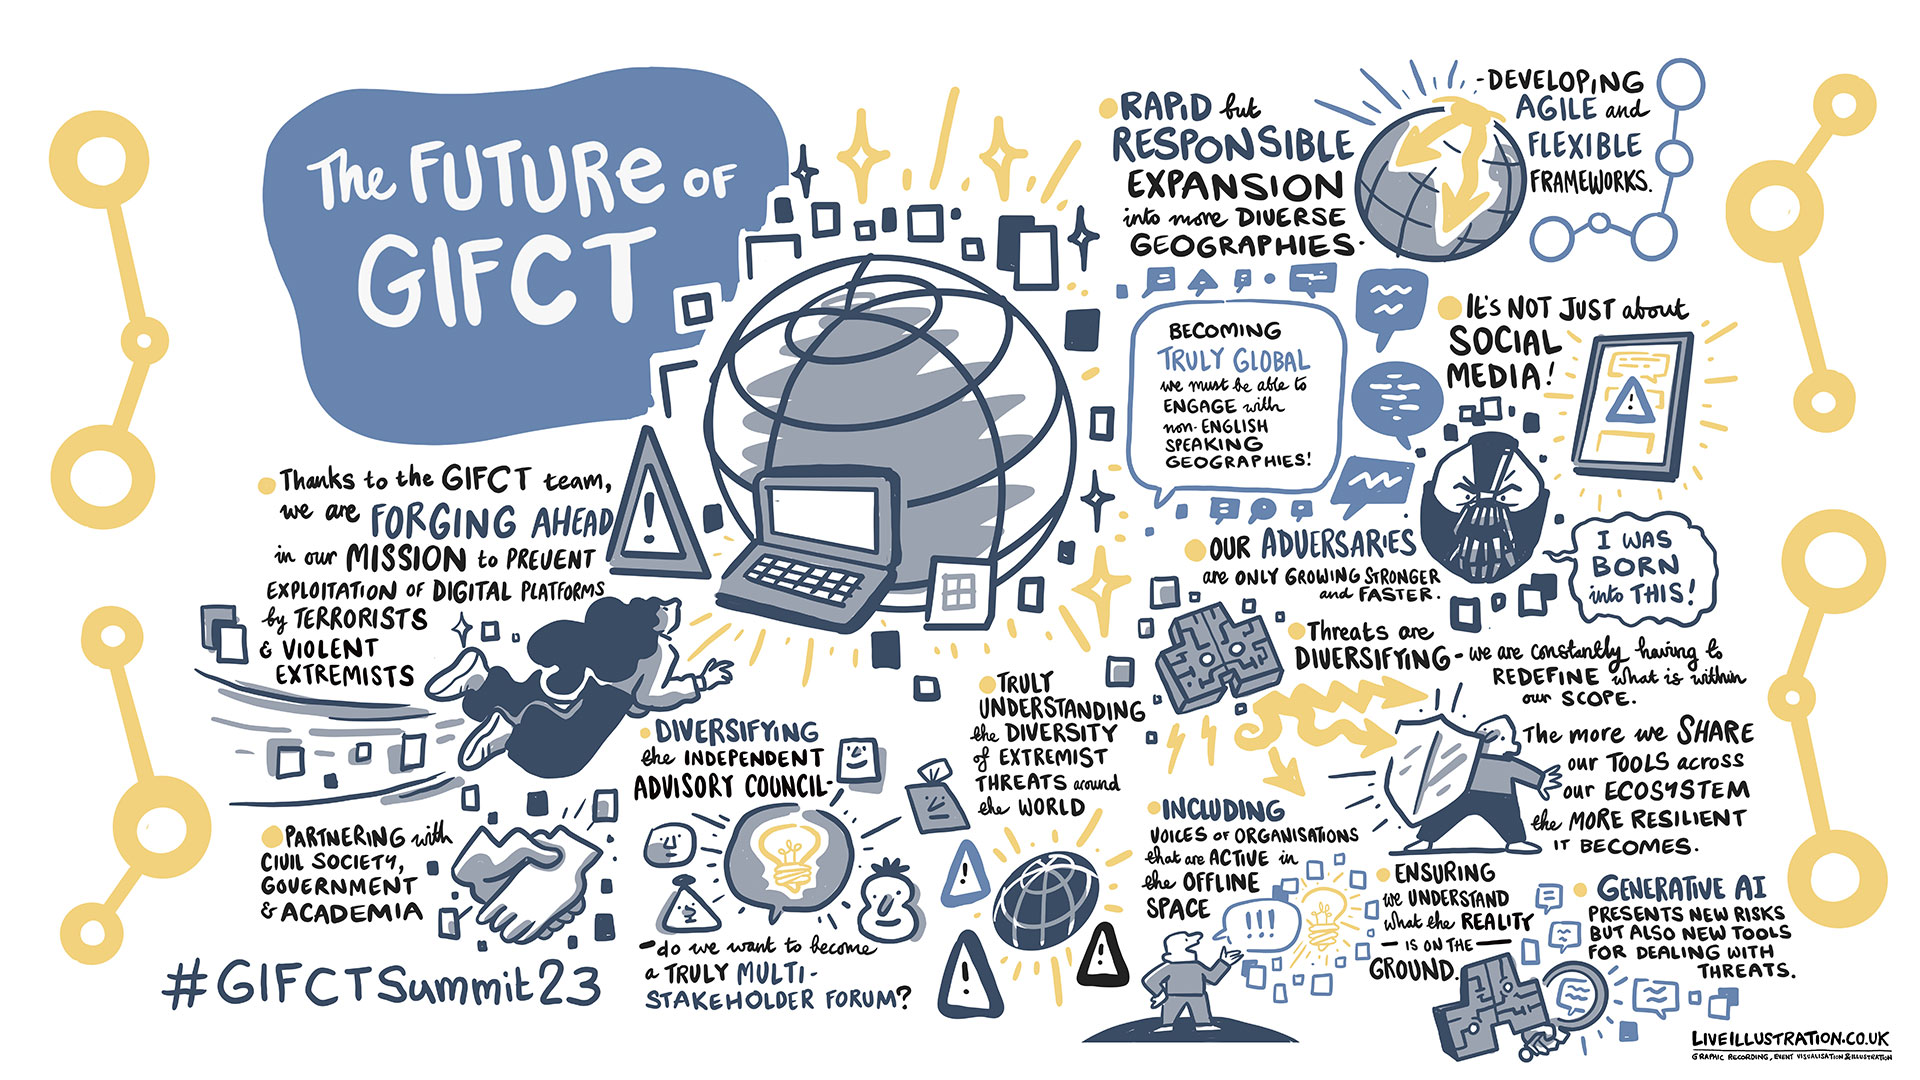 The FUTURE OF
GIFCT
Thanks to the GIFCT team,
we are FORGING AHEAD
in our MISSION to PREVENT
EXPLOITATION OF DIGITAL PLATFORMS
by TERRORISTS
& VIOLENT
EXTREMISTS
PARTNERING with
CIVIL SOCIETY,
GOVERNMENT
& ACADEMIA
#GIFCTSummit23
DIVERSIFYING
the INDEPENDENT
ADVISORY COUNCIL-
-do we want to become
a TRULY MULTI-
STAKEHOLDER FORUM?
TRULY
UNDERSTANDING
the DIVERSITY
of EXTREMIST
THREATS around
the WORLD
RAPID but
RESPONSIBLE
EXPANSION
into more DIVERSE
GEOGRAPHIES.
-DEVELOPING
AGILE and
FLEXIBLE
FRAMEWORKS.
BECOMING
TRULY GLOBAL
we must be able to
ENGAGE with
non-ENGLISH
SPEAKING
GEOGRAPHIES!
It's NOT JUST about
SOCIAL
MEDIA!
!
OUR ADVERSARIES
are ONLY GROWING STRONGER
and FASTER.
I WAS
BORN
into THIS!
Threats are
DIVERSIFYING - we are constantly having to
REDEFINE what is within
our SCOPE.
The more we SHARE
our TOOLS across
our ECOSYSTEM
the MORE RESILIENT
IT BECOMES.
INCLUDING
VOICES OF ORGANISATIONS
that are ACTIVE in
the OFFLINE
SPACE
!!!
ENSURING
we UNDERSTAND
what the REALITY
- IS ON THE -
GROUND.
GENERATIVE AI
PRESENTS NEW RISKS
BUT ALSO NEW TOOLS
FOR DEALING WITH
THREATS.
!
!
!
!
LIVEILLUSTRATION.CO.UK
GRAPHIC RECORDING, EVENT VISUALISATION & ILLUSTRATION